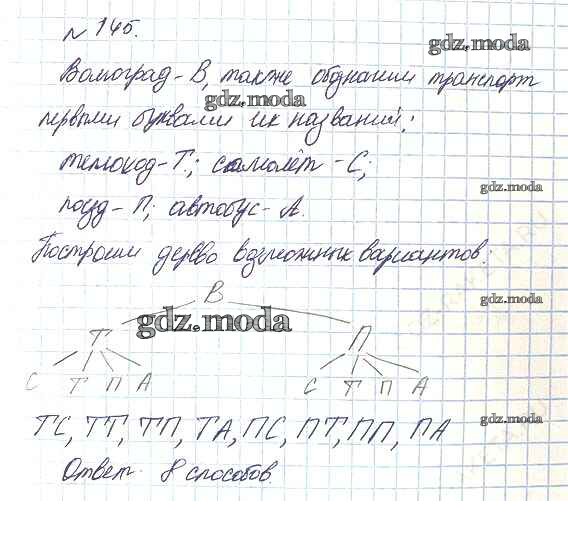 № 145.
gdz.moda
Волгоград - В, также обозначим транспорт
gdz.moda
первыми буквами их названий:
теплоход - Т; самолёт - С;
gdz.moda
поезд - П; автобус - А.
Построим дерево возможных вариантов:
В
gdz.moda
gdz.moda
Т П
С Т П А С Т П А
ТС, ТТ, ТП, ТА, ПС, ПТ, ПП, ПА
gdz.moda
Ответ: 8 способов.